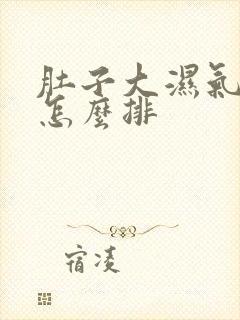 肚子大濕氣
怎麼排
宿凌